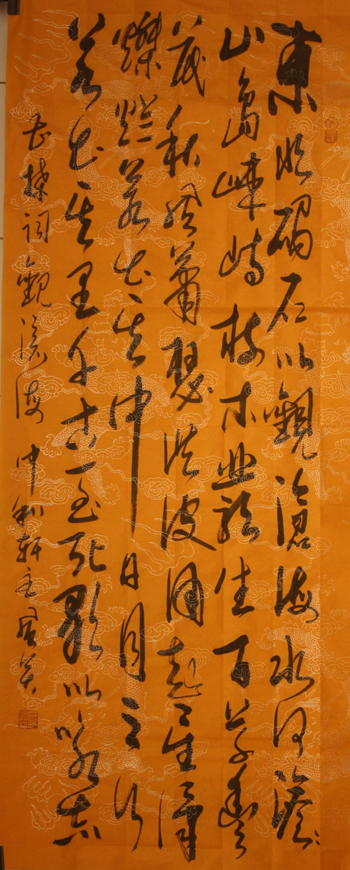 東臨碣石以觀滄海水何澹澹
山島竦峙樹木叢生百草豐
茂秋風蕭瑟洪波涌起星漢
燦爛若出其中日月之行
若出其里幸甚至哉歌以咏志
曹操詞觀滄海中和軒主